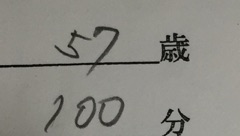 57歳
100分